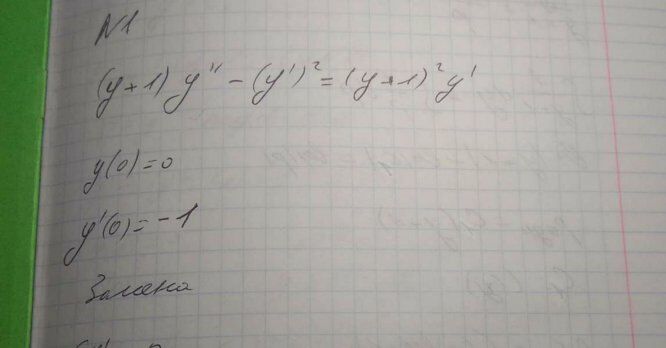 N1
(y+1)y''-(y')²=(y+1)²y'
y(0)=0
y'(0)=-1
Замена